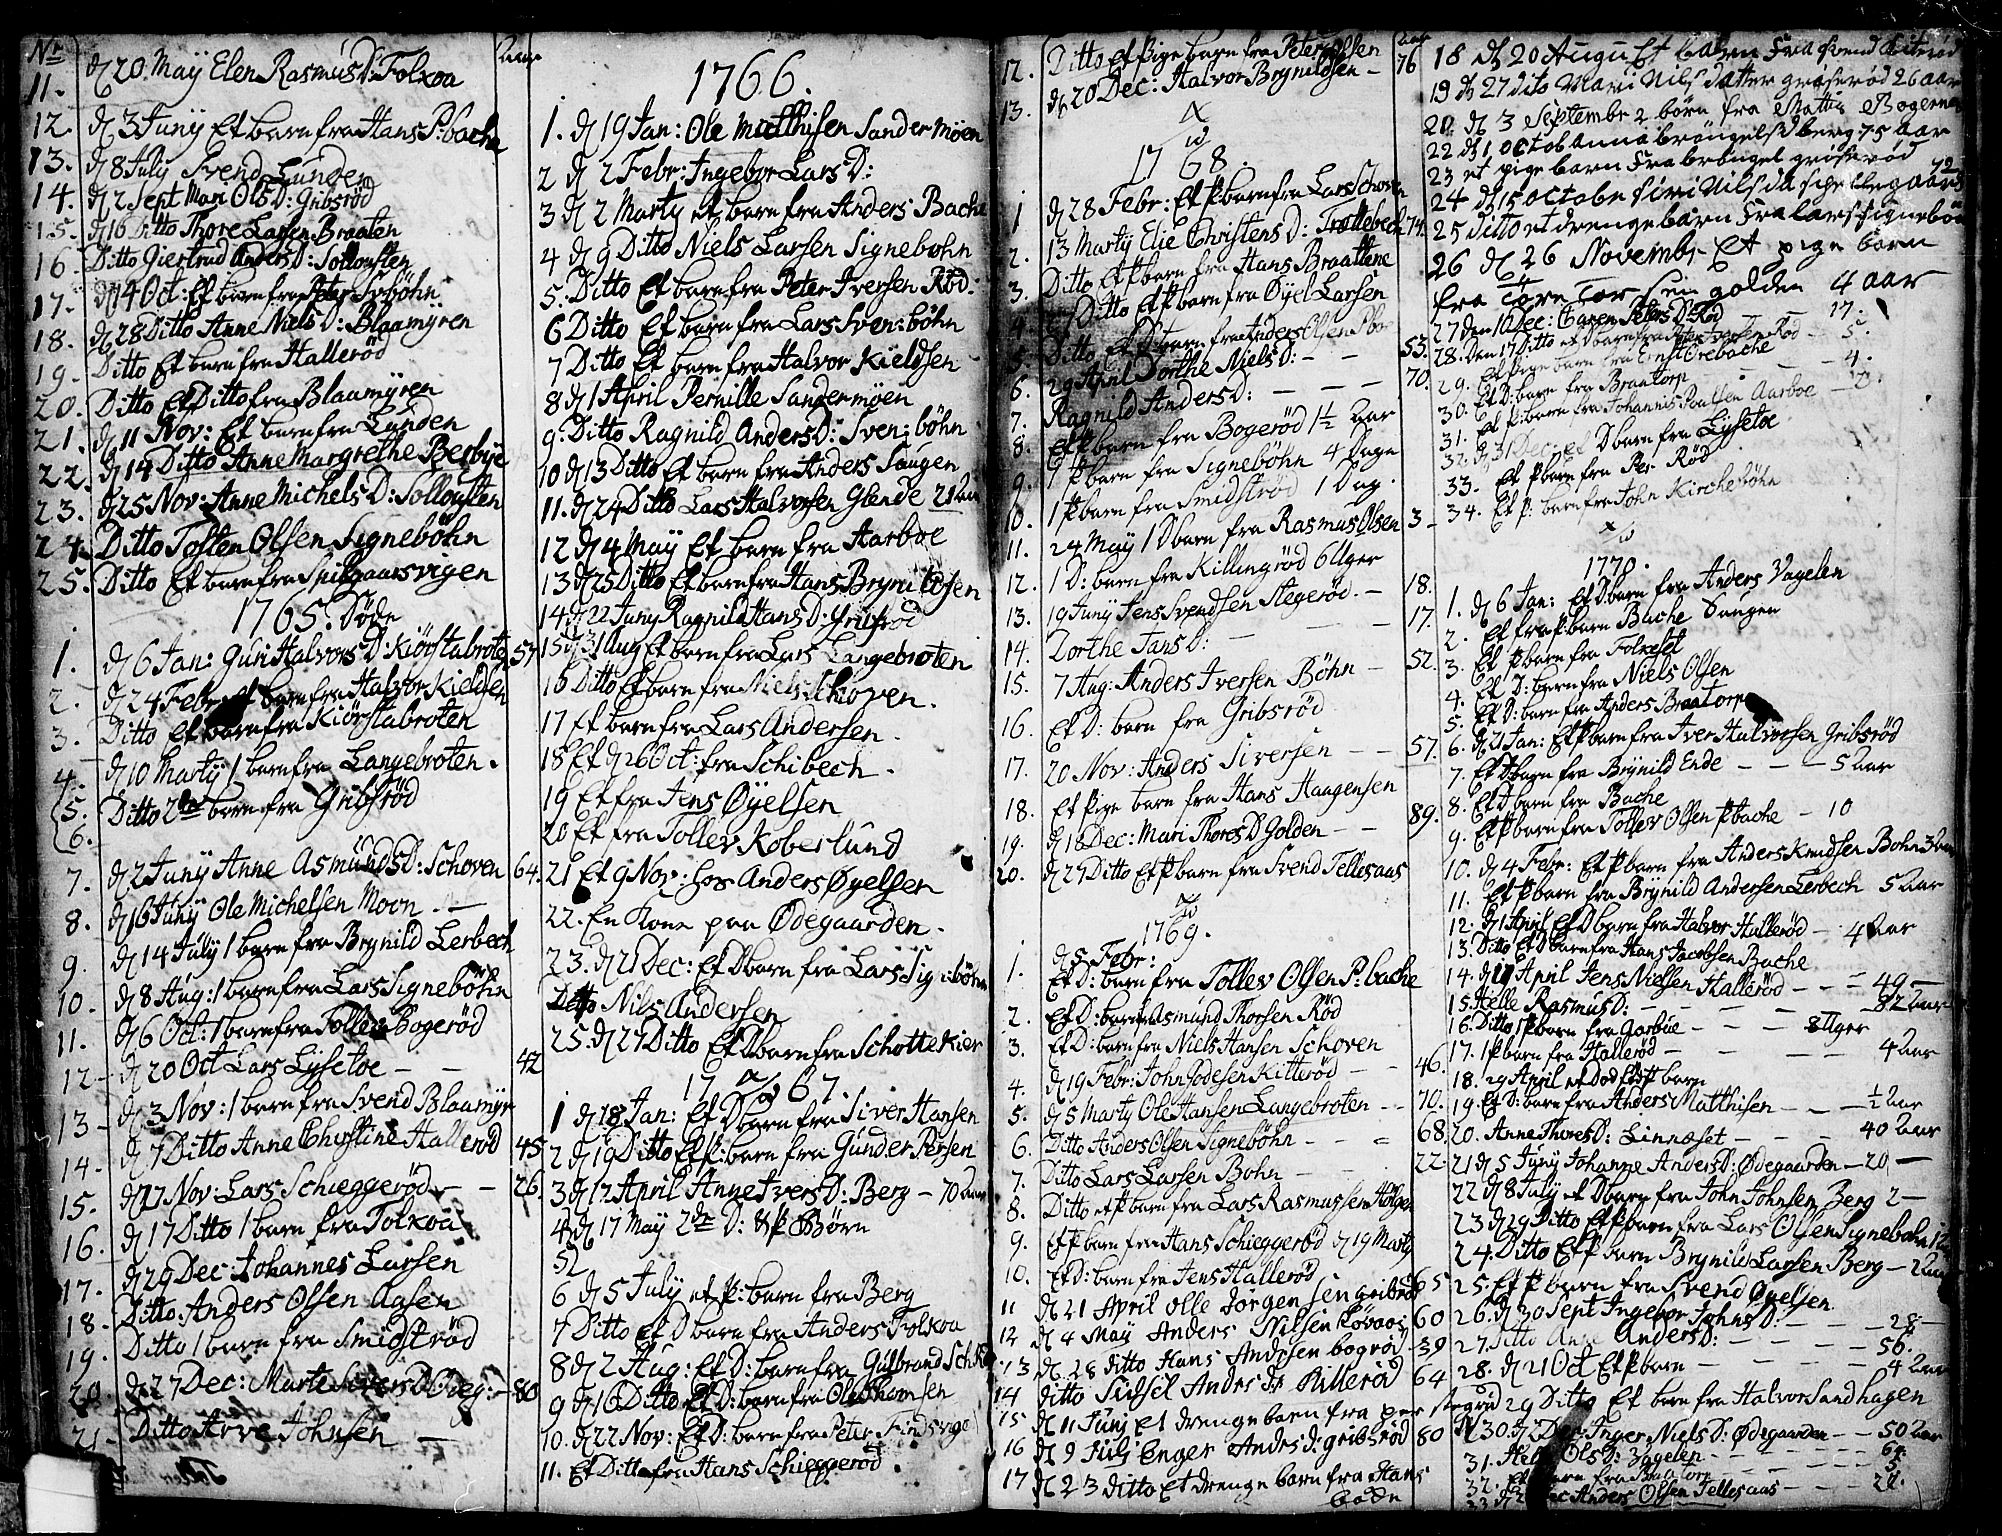 Nr
Aar
11. d 20. Maÿ Elen Rasmus D: Folkoa
12. d 3 Junÿ Et barn fra Hans P:bache
13. d 8 Julÿ Svend Lunden
14. d 2 Sept Mari Ols D: Gribsröd
15. d 16 Ditto Thore Larsen Braaten
16. Ditto Giertrud Anders D: Sollousten
17. d 14 Oct: Et barn fra Peter Svböhn
18. d 28 Ditto Anne Niels D: Blaamÿren
19. Ditto Et barn fra Halleröd
20. Ditto Et Ditto fra Blaamÿren
21. d 11 Nov: Et barn fra Lunden
22. d 14 Ditto Anne Margrethe Berbÿe
23. d 25 Nov: Anne Michels D: Sollousten
24. Ditto Tosten Olsen Signeböhn
25. Ditto Et barn fra Spilgaarsvigen
1765. Döde
1. d 6 Jan: Guri Halvors D: Kiörstabroten 57
2. d 24 Febr et barn fra Halvor Kieldsen
3. Ditto Et barn fra Kiörstabroten
4. d 10 Martÿ 1 barn fra Langebroten.
5. Ditto 2de barn fra Gribsröd
6.
7. d 2 Junÿ Anne Asmunds D: Schoven 64.
8. d 16 Junÿ Ole Michelsen Moon
9. d 14 Julÿ 1 barn fra Brÿnild Lerbech
10. d 8 Aug: 1 barn fra Lars Signeböhn
11. d 6 Oct: 1 barn fra Tollev Bogeröd
12 - d 20 Oct Lars Lÿsetoe - - 42
13 - d 3 Nov: 1 barn fra Svend Blaamÿr
14 - d 7 Ditto Anne Christine Halleröd 45
15. d 17 Nov: Lars Schieggeröd - - 26.
16. d 17 Ditto 1 barn fra Folkoa
17. d 29 Dec: Johannes Larsen
18. Ditto Anders Olsen Aasen
19. Ditto 1 barn fra Smidströd
20. d 27 Dec: Marte Sivers D Berg. - 80
21 - Ditto Arve Johnsen -
1766.
1. d 19 Jan: Ole Matthisen Sandermöen
2 d 2 Febr: Ingebor Lars D:
3 d 2 Martÿ et barn fra Anders Bache
4 d 9 Ditto Niels Larsen Signebohn
5. Ditto Et barn fra Peter Iversen Röd.
6 Ditto Et barn fra Lars Sven:böhn
7 Ditto Et barn fra Halvor Kieldsen
8 d 1 April Pernille Sandermöen
9. Ditto Ragnild Anders D: Sven:böhn
10 d 13 Ditto Et barn fra Anders Saugen
11. d 24 Ditto Lars Halvorsen Glende 21 Aar
12 d 4 Maÿ Et barn fra Aarboe
13 d 25 Ditto Et barn fra Hans Brÿnildsen
14 d 22 Junÿ Ragnild Hans D: Gribsröd
15 d 31 Aug Et barn fra Lars Langebroten
16 Ditto Et barn fra Niels Schoven.
17 Et barn fra Lars Andersen.
18 Et d 26 Oct: fra Schibech.
19 Et fra Jens Øyelsen
20 Et fra Tollev Koberlund
21 Et 9 Nov: hos Anders Øyelsen
22. En Kone paa Ødegaarden.
23. d 21 Dec: Et D barn fra Lars Sig:böhn
Ditto Nils Andersen
25. d 27 Ditto Et D barn fra Schottekier
1767.
1 d 18 Jan: Et D barn fra Siver Hansen
2 d 19 Ditto Et P: barn fra Gunder Persen
3 d 12 April Anne Ivers D: Berg - 70 Aar
4 d 17 Maÿ 2de D: & P Børn
5
6 d 5 Julÿ et P: barn fra Berg
7 Ditto Et D barn fra Anders Folkoa
8 d 2 Aug: Et D: barn fra Gulbrand
9 d 16 Ditto Et D: barn fra Ole Thomsen
10. d 22 Nov: Et D: barn fra Peter
11. Et Ditto fra Hans Schieggeröd
Aar
12. Ditto Et Pige barn fra Peter Olsen
13. d 20 Dec: Halvor Brÿnildsen - 76
1768.
1 d 28 Febr: Et P barn fra Lars Schoven
2. 13 Martÿ Elie Christens D: Trollebech 74.
3. Ditto Et P barn fra Hans Braattene
4. 27 Ditto Et P barn fra Øyel Larsen
5. Ditto Et D barn fra Anders Olsen
6. 29 April Dorthe Niels D: - - 53.
7. Ragnild Anders D: - - - 70.
8. Et P barn fra Bogeröd 1½ Aar
9. 1 P barn fra Signeböhn 4 Dage
10. 1 P barn fra Smidströd 1 Dag.
11. 24 Maÿ 1 D barn fra Rasmus Olsen 3 -
12. 1 D: barn fra Killingröd 6 Uger
13. 19 Junÿ Jens Svendsen Stegeröd. - 18.
14. Dorthe Jans D: - - - 17.
15. 7 Aug: Anders Iversen Böhn - 52.
16. Et D: barn fra Gribsröd
17. 20 Nov: Anders Siversen - - 57.
18. Et Pige barn fra Hans Haagensen
19. d 18 Dec: Mari Thores D Golden - - 89.
20. d 27 Ditto Et P barn fra Svend Tellesaas
1769.
1. d 5 Febr:
Et D: barn fra Tollev Olsen P:bache
2. Et D: barn fra Asmund Thorsen Röd
3. Et D: barn fra Niels Hansen Schoven
4. d 19 Febr: John Jodesen Kitteröd - - 46.
5. d 5 Martÿ Ole Hansen Langebroten - - 70.
6. Ditto Anders Olsen Signeböhn - - - 68
7. Ditto Lars Larsen Bohn - - 22.
8. Ditto et P barn fra Lars Rasmussen
9. Et P barn fra Hans Schieggeröd d 19 Martÿ
10. Et D: barn fra Jens Halleröd
11 d 21 April Olle Jörgensen gribsröd 65
12 d 4 May Anders Nilsen Rövaas 60
13 d 28 ditto Hans Andrsen bogröd 39
14 ditto Sidsel Andrs dr Killeröd 64
15 d 11 Junj et drenge barn fra per stegröd
16 d 9 Julj Enger Andrs dr gribsröd 80
17 d 23 ditto Et drenge barn fra Hans
bode
18 d 20 August et barn fra Svend
19 d 27 dito Mari Nils datter gröseröd 26 aar
20 d 3 Septembr 2 börn fra Mattis Bogerne
22 d 1 octob anna bröngelsd berg 75 aar
23 et pige barn fra bröngel gröseröd
24 d 15 octobr siri Nils da 72
25 ditto et drenge barn fra lars signebön
26 d 26 Novembr Et pige barn
fra Tore Torsen golden 4 aar
27 den 10 Dec: Caren Peders D: Röd - - 17.
28. den 17 Ditto et D barn fra Peter Iversen Röd - 5.
29. Et pige barn fra Ernst Örebache - 4.
30. Et D: barn fra Braatorp
31. Et P: barn fra Johannis Poulsen Aarboe
32. d 31 Dec: et D barn fra Lÿsetoe
33. Et P barn fra Per Röd
34. Et P: barn fra John Kircheböhn
1770.
1. d 6 Jan: Et D barn fra Anders Vagelen
2. Et P barn Bache Saugen
3. Et P barn fra Folkest
4. Et D: barn fra Niels Olsen
5. Et D: barn fra Anders Braatorp
6. d 21 Jan: Et P barn fra Iver Halvorsen Gribsröd
7. Et D barn fra Brÿnild Ende - - - 5 Aar
8. Et D barn fra Bache
9. Et P barn fra Tollev Olsen P:bache - 10
10. d 4 Febr: Et P barn fra Anders Knudsen Bohn 3 Aar
11. Et P barn fra Brÿnild Andersen Lerbech 5 Aar
12. d 1 April Et D barn fra Halvor Halleröd - 4 Aar
13. Ditto Et D barn fra Hans Jacobsen Bache
14. d 11 April Jens Nielsen Halleröd - - - 49 -
15. Helle Rasmus D: - - - - 82 Aar
16. Ditto 1 P barn fra Aarboe - - - 8 Uger
17. 1 P barn fra Halleröd - - - - 4 Aar
18. 29 April et Dödföd P barn
19. Et D: barn fra Anders Matthisen - - - ½ Aar
20. Anne Thores D: Linnæset - - - 40 Aar
21 d 5 Junÿ Johanne Anders D: Ødegaarden - 20 -
22 d 8 Julÿ et D barn fra John Johnsen Berg 2 -
23 d 29 Ditto Et P barn fra Lars Olsen Signebohn 1 Aar
24. Ditto Et P barn Brÿnild Larsen Berg - 2 Aar
25. Et P barn fra Svend Øyelsen
26. d 30 Sept Ingebor Johns D: - - - 28 -
27. Ditto Anne Anders D: - - - 56.
28. d 21 Oct Et P barn - - - - 4 Aar
29 Ditto Et barn fra Halvor Sandhagen
30. d 2 Dec Inger Niels D: Ødegaarden - - 50 Aar
31. Helle Ols D: Vagelen - - - - 64.
32. Et barn fra Braatorp - - - 5.
33 d Dec Anders Olsen Tellesaas - - - 22.